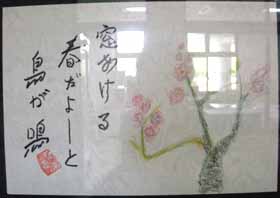 窓あける
春だよーと
鳥が鳴